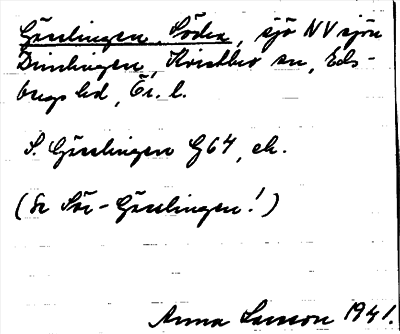 Gässlingen, Södra, sjö NV sjön
Dimlingen, Kvistbro sn, Eds-
bergs hd, Ör. l.
S. Gässlingen G64, ek.
(Se Sör-Gässlingen!)
Anna Larsson 1941.